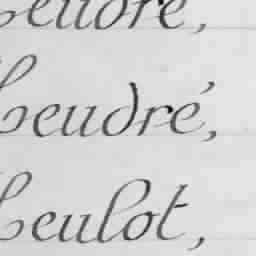 Leudre,
Leudré,
Leulot,